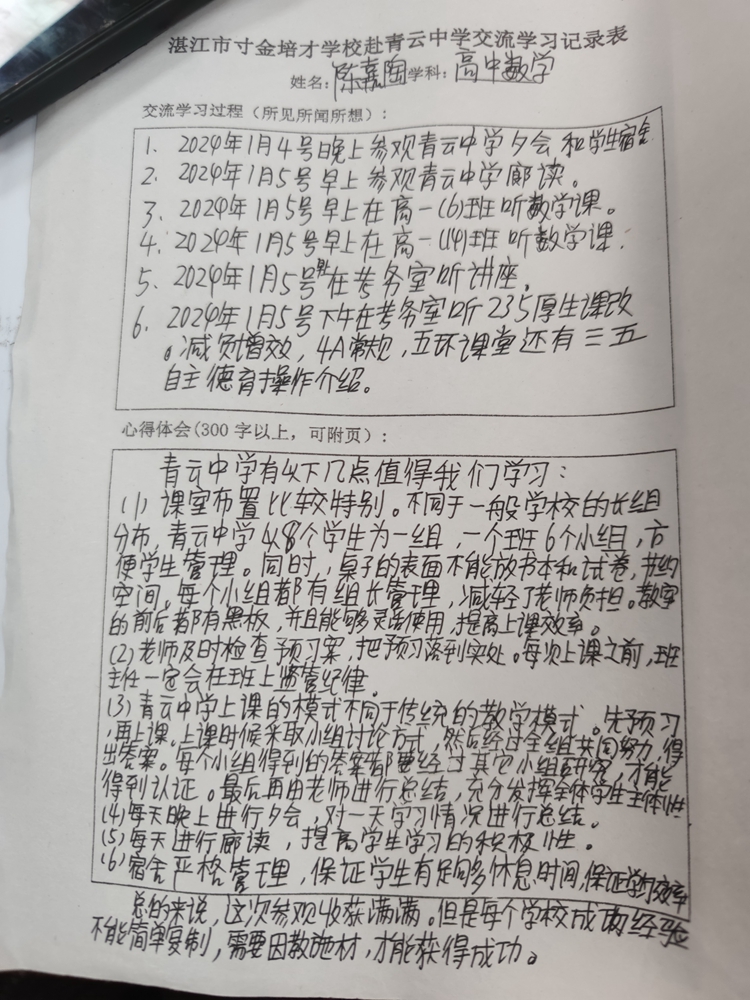 湛江市寸金培才学校赴青云中学交流学习记录表
姓名：陈嘉陶学科：高中数学
交流学习过程（所见所闻所想）：
1、2024年1月4号晚上参观青云中学夕会和学生宿舍
2、2024年1月5号早上参观青云中学廊读。
3、2024年1月5号早上在高一(6)班听数学课。
4、2024年1月5号早上在高一(14)班听数学课.
5、2024年1月5号早上在考务室听讲座。
6、2024年1月5号下午在考务室听235厚生课改
。减负增效，4A常规，五环课堂还有三五
自主德育操作介绍。
心得体会(300字以上，可附页)：
青云中学有以下几点值得我们学习：
(1)课室布置比较特别。不同于一般学校的长组
分布，青云中学以8个学生为一组，一个班6个小组，方
便学生管理。同时，桌子的表面不能放书本和试卷，节约
空间。每个小组都有组长管理，减轻了老师负担。教室
的前后都有黑板，并且能够灵活使用，提高上课效率。
(2)老师及时检查预习案，把预习落到实处。每次上课之前，班
主任一定会在班上监管纪律。
(3)青云中学上课的模式不同于传统的教学模式。先预习
，再上课。上课时候采取小组讨论方式，然后经过全组共同努力，得
出答案。每个小组得到的答案都要经过其它小组研究，才能
得到认证。最后再由老师进行总结，充分发挥全体学生主体性
(4)每天晚上进行夕会，对一天学习情况进行总结。
(5)每天进行廊读，提高学生学习的积极性。
(6)宿舍严格管理，保证学生有足够多休息时间，保证学习效率
总的来说，这次参观收获满满。但是每个学校成功经验
不能简单复制，需要因教施材，才能获得成功。